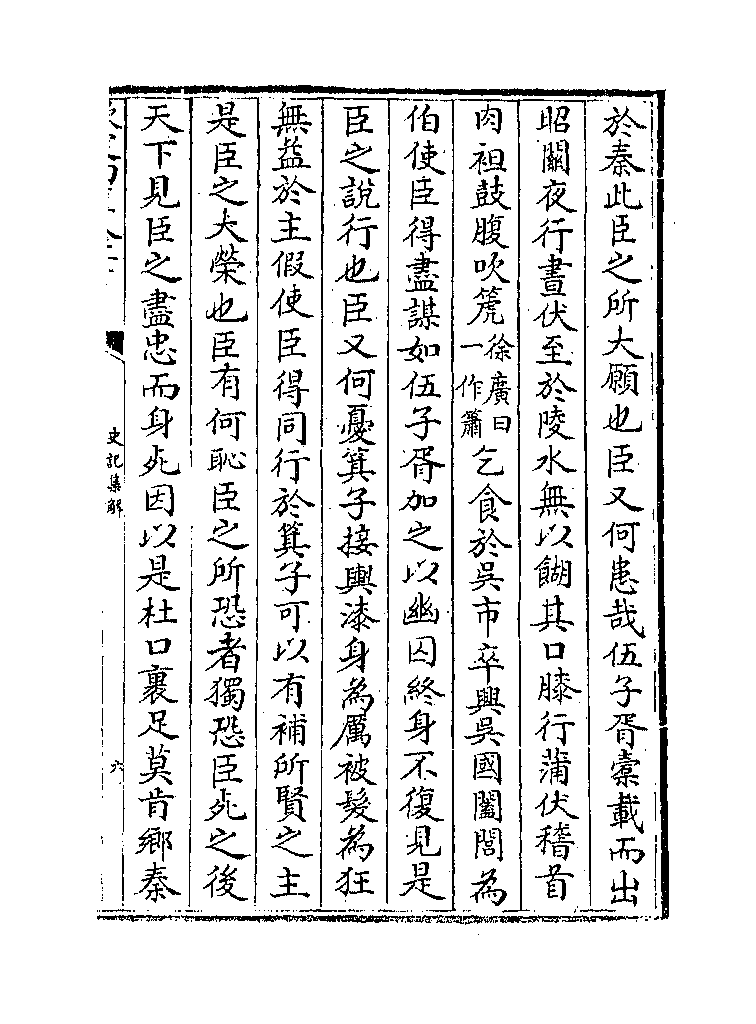 於秦此臣之所大願也臣又何患哉伍子胥橐載而出
昭關夜行晝伏至於陵水無以餬其口膝行蒲伏稽首
肉袒鼓腹吹篪徐廣曰一作簫乞食於吳市卒興吳國闔閭為
伯使臣得盡謀如伍子胥加之以幽囚終身不復見是
臣之說行也臣又何憂箕子接輿漆身為厲被髮為狂
無益於主假使臣得同行於箕子可以有補所賢之主
是臣之大榮也臣有何恥臣之所恐者獨恐臣死之後
天下見臣之盡忠而身死因以是杜口裹足莫肯鄉秦
史記集解
六